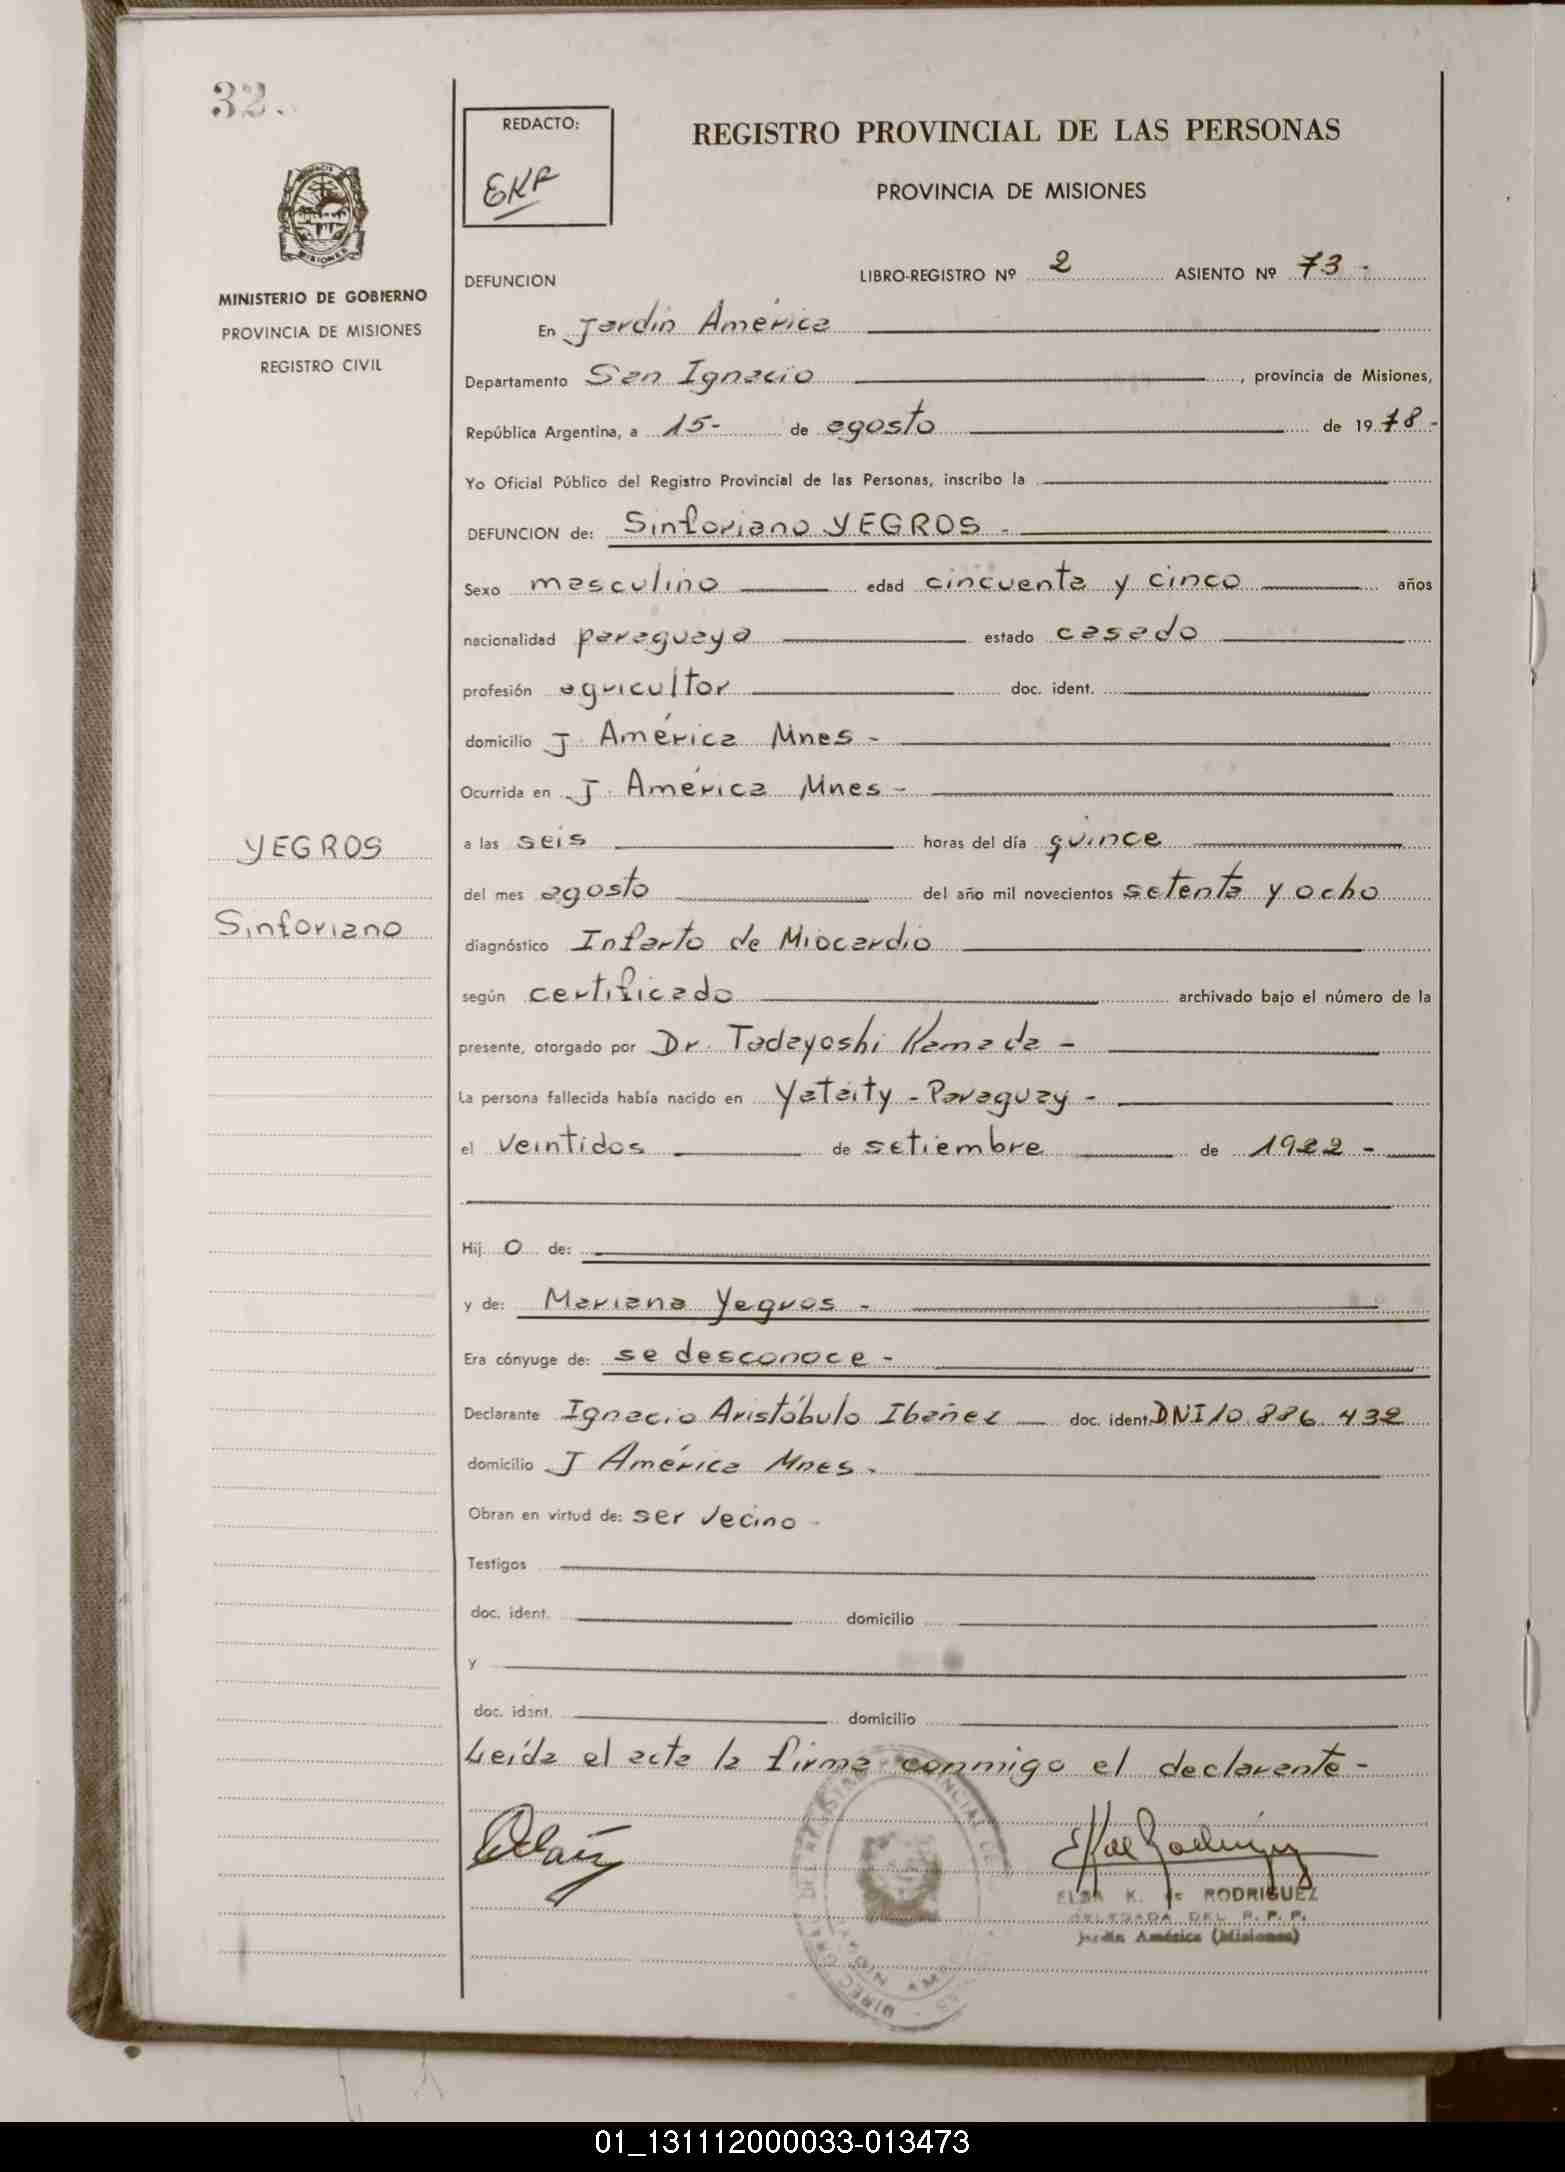 32.
REDACTO:
EKR
REGISTRO PROVINCIAL DE LAS PERSONAS
PROVINCIA DE MISIONES
MISIONES
MINISTERIO DE GOBIERNO
PROVINCIA DE MISIONES
REGISTRO CIVIL
DEFUNCION LIBRO-REGISTRO Nº 2 ASIENTO Nº 73-
En Jardín América
Departamento San Ignacio, provincia de Misiones,
República Argentina, a 15- de agosto de 1978-
Yo Oficial Público del Registro Provincial de las Personas, inscribo la
DEFUNCION de: Sinforiano YEGROS -
Sexo masculino edad cincuenta y cinco años
nacionalidad paraguaya estado casado
profesión agricultor doc. ident.
domicilio J. América Mnes -
Ocurrida en J. América Mnes -
YEGROS
a las seis horas del día quince
del mes agosto del año mil novecientos setenta y ocho
Sinforiano
diagnóstico Infarto de Miocardio
según certificado archivado bajo el número de la
presente, otorgado por Dr. Tadayoshi Kamada -
La persona fallecida había nacido en Yataity - Paraguay -
el veintidos de setiembre de 1922 -
Hij o de:
y de: Mariana Yegros -
Era cónyuge de: se desconoce -
Declarante Ignacio Aristóbulo Ibañez doc. ident. DNI 10.886.432
domicilio J América Mnes.
Obran en virtud de: ser vecino -
Testigos
doc. ident. domicilio
y
doc. ident. domicilio
Leída el acta la firma conmigo el declarante -
ELSA K. de RODRIGUEZ
DELEGADA DEL R. P. P.
Jardín América (Misiones)
01_131112000033-013473